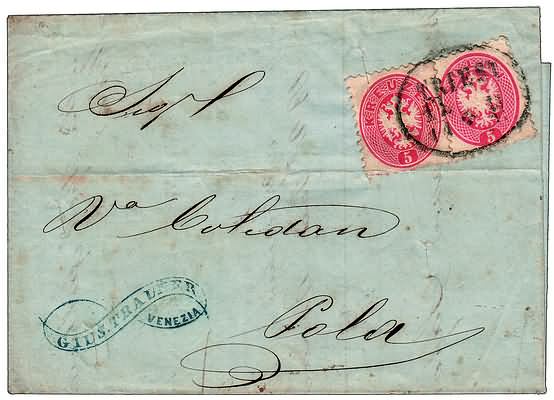 TRIEST
KREUZER
5
5
Va Coledan
GIUS. TRAUNER
VENEZIA
Pola